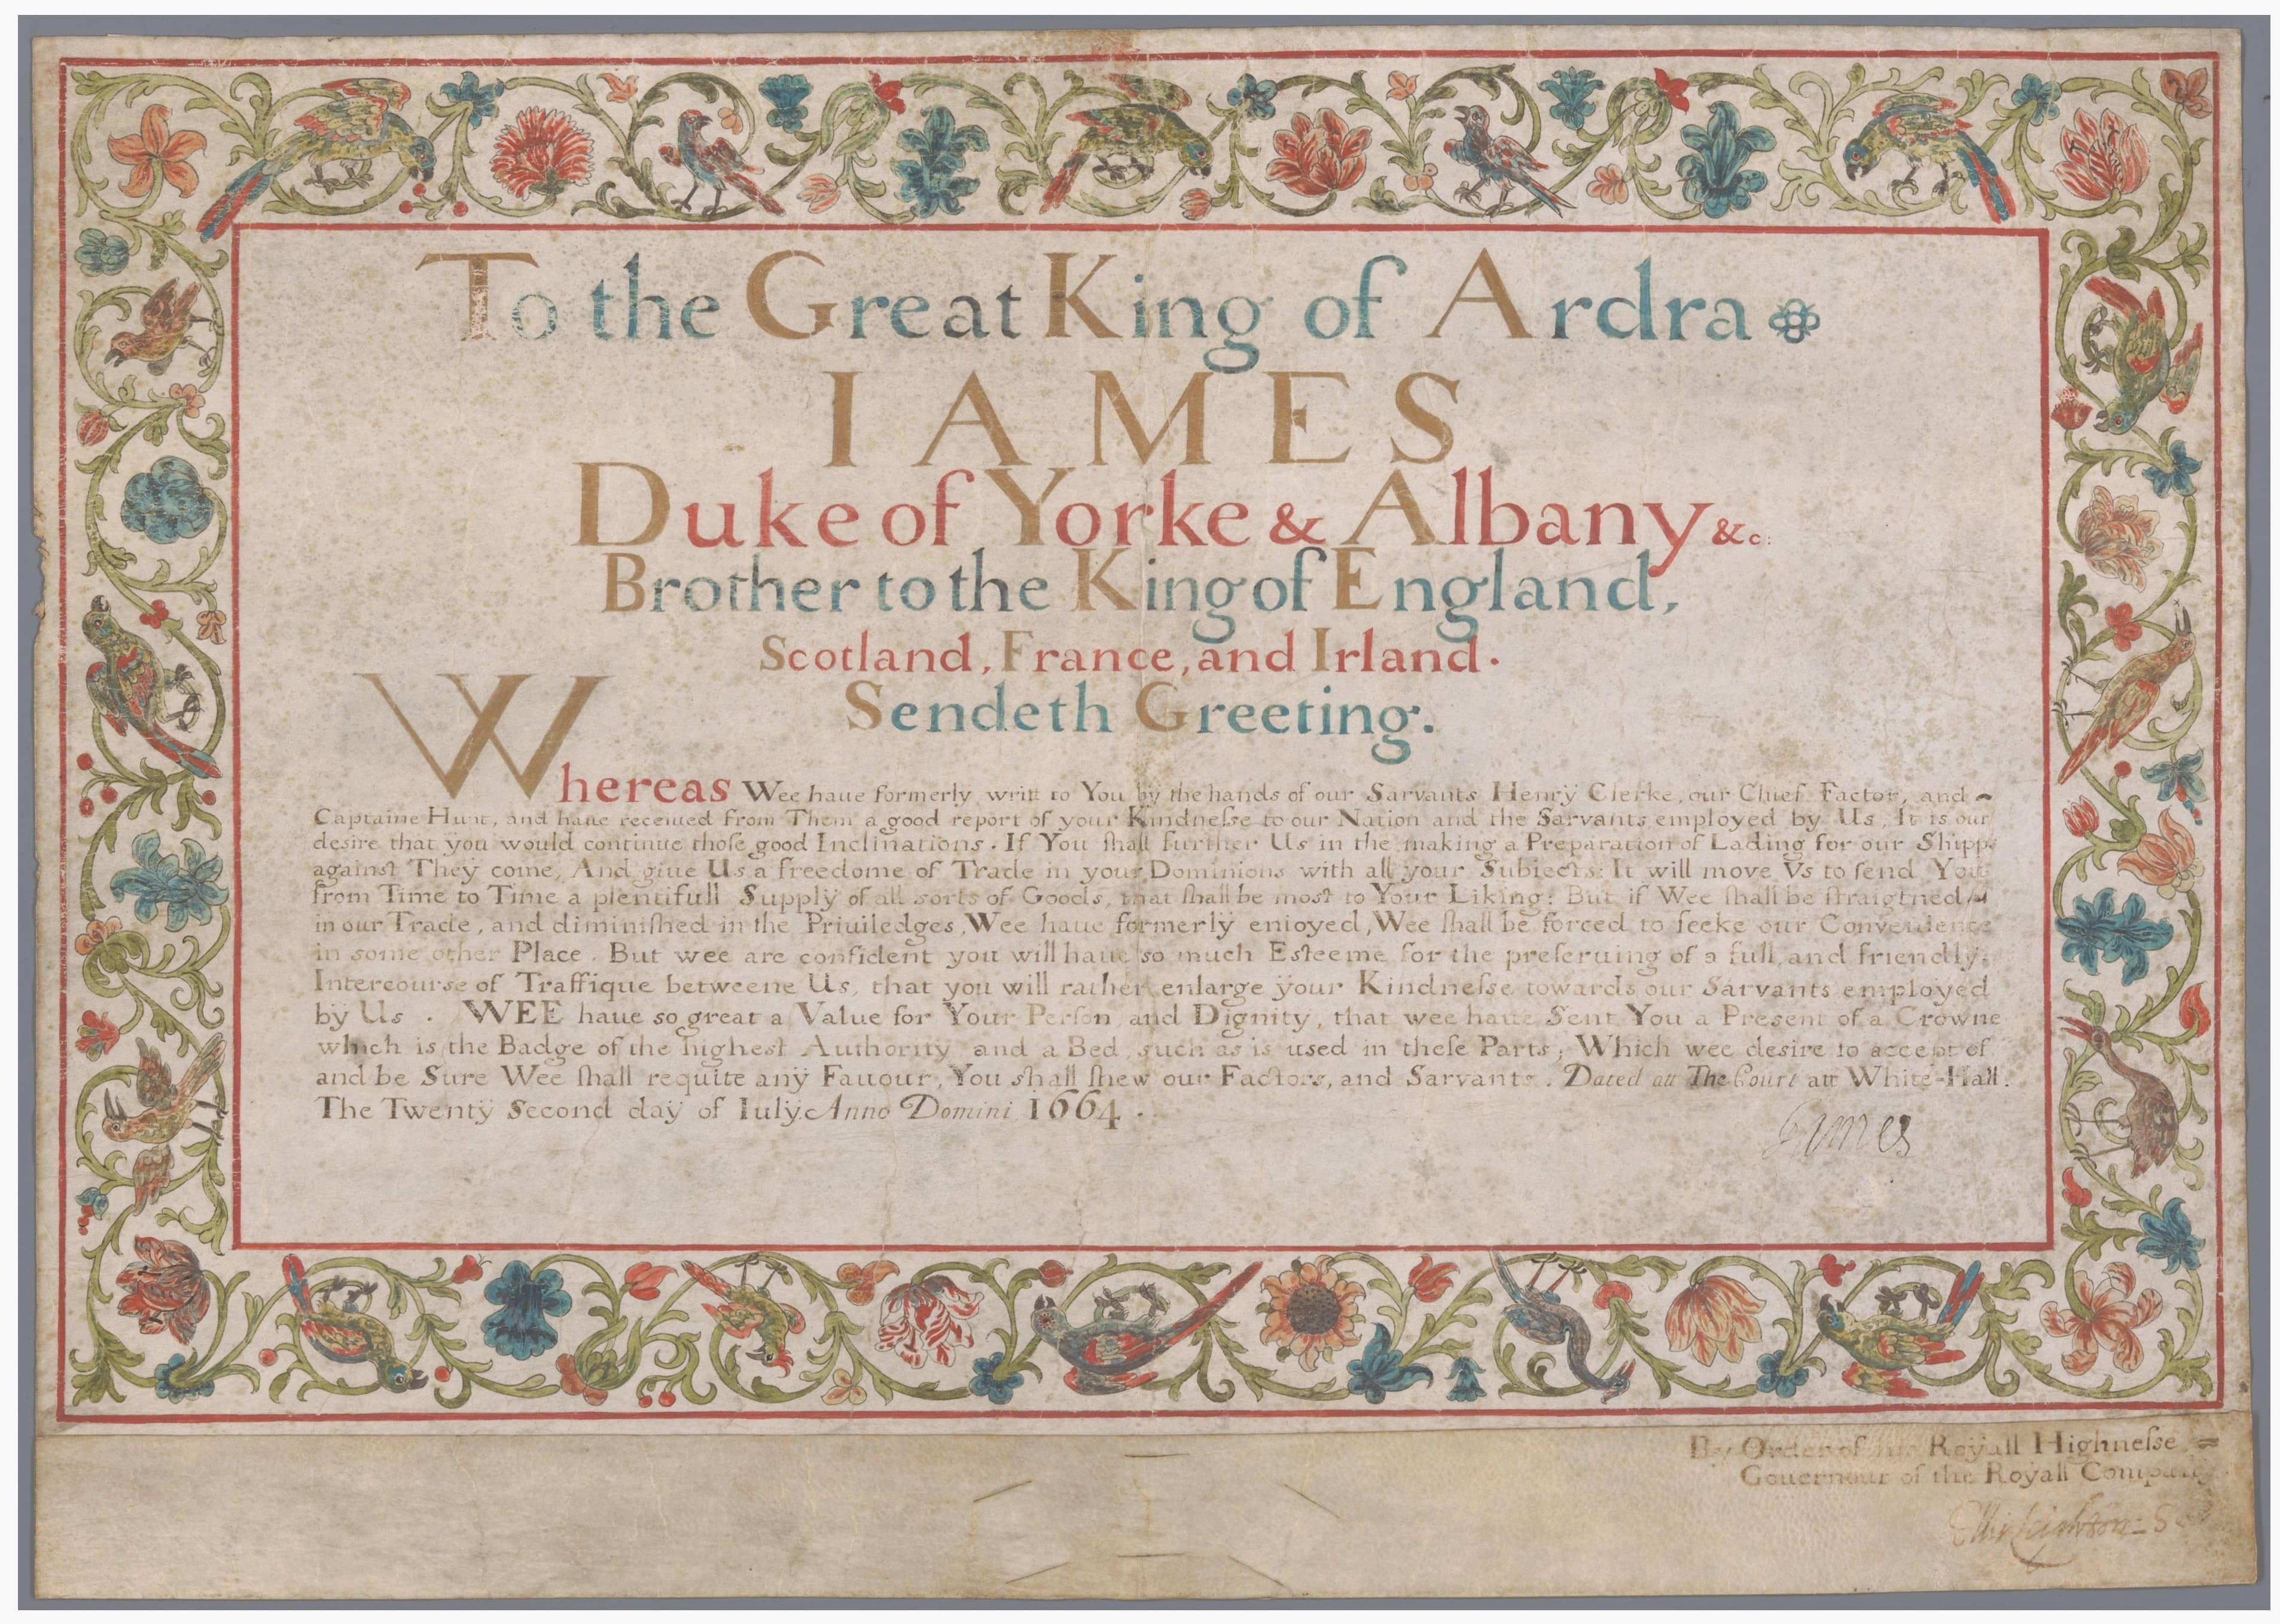 To the Great King of Ardra
IAMES
Duke of Yorke & Albany &c:
Brother to the King of England,
Scotland, France, and Irland.
Sendeth Greeting.
Whereas Wee haue formerly writt to You by the hands of our Sarvants Henry Clerke, our Chief Factor, and
Captaine Hunt, and haue receiued from Them a good report of your Kindneſse to our Nation and the Sarvants employed by Us, It is our
desire that you would continue thoſe good Inclinations. If You ſhall further Us in the making a Preparation of Lading for our Shipps
against They come, And giue Us a freedome of Trade in your Dominions with all your Subiects: It will move Vs to ſend You
from Time to Time a plentifull Supply of all sorts of Goods, that ſhall be most to Your Liking: But if Wee ſhall be ſtraigtned
in our Trade, and diminiſhed in the Priuiledges, Wee haue formerly enioyed, Wee ſhall be forced to ſeeke our Convenience
in some other Place. But wee are confident you will haue so much Esteeme for the preſeruing of a full, and friendly
Intercourse of Traffique betweene Us, that you will rather enlarge your Kindneſse towards our Sarvants employed
by Us. WEE haue so great a Value for Your Perſon and Dignity, that wee haue Sent You a Present of a Crowne
which is the Badge of the highest Authority and a Bed, such as is used in theſe Parts; Which wee desire to accept of
and be Sure Wee ſhall requite any Fauour, You shall ſhew our Factors, and Sarvants. Dated att The Court att White-Hall.
The Twenty Second day of Iuly Anno Domini 1664.
James
By Order of his Royall Highneſse
Gouernour of the Royall Company
Ellis Leighton